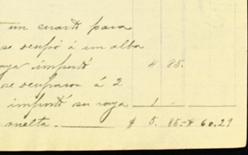 un cuarto para
se ocupó á un alba
raya importó " 85.
se ocuparon á 2
importó su raya 1
vuelta. $ 5. 85 - $ 60.29